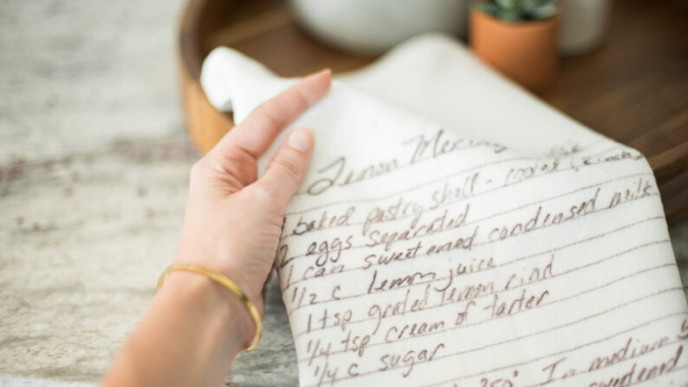 Lemon Mering
baked pastry shell -
2 eggs separated
1 can sweetened condensed milk
1/2 c lemon juice
1 tsp grated lemon rind
1/4 tsp cream of tarter
1/4 c sugar
350° In medium